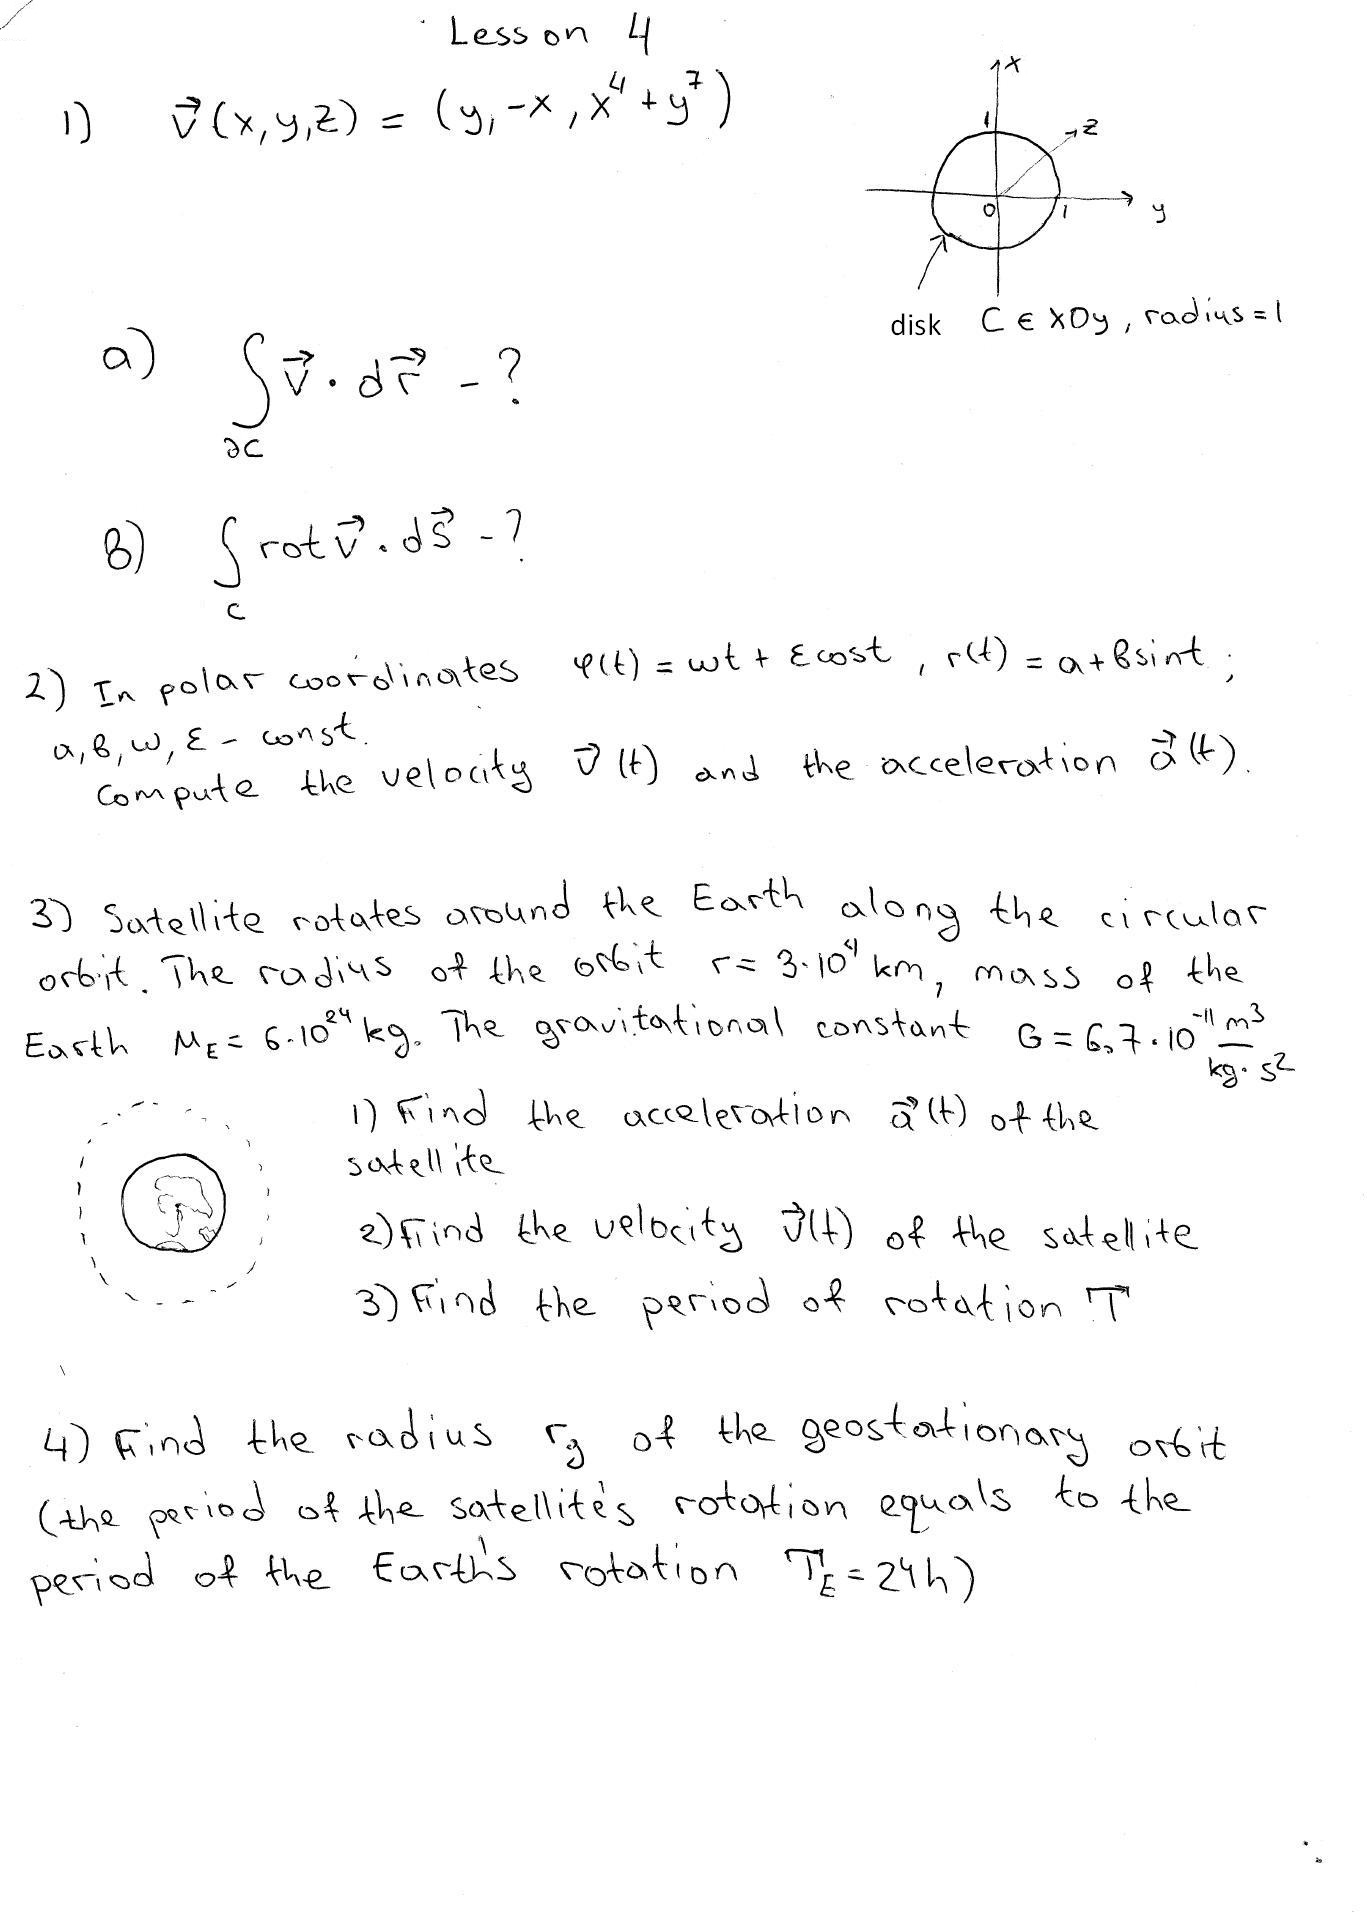 Lesson 4
1) v⃗(x,y,z) = (y, -x, x⁴+y⁷)
x
1
z
0
1
y
disk C ∈ xOy, radius = 1
a) ∫ v⃗ · dr⃗ - ?
∂C
в) ∫ rot v⃗ · dS⃗ - ?
C
2) In polar coordinates φ(t) = ωt + εcost, r(t) = a+вsint ;
a, в, ω, ε - const.
Compute the velocity v⃗(t) and the acceleration a⃗(t).
3) Satellite rotates around the Earth along the circular
orbit. The radius of the orbit r = 3·10⁴ km, mass of the
Earth M_E = 6·10²⁴ kg. The gravitational constant G = 6,7·10⁻¹¹ m³/kg·s²
1) Find the acceleration a⃗(t) of the
satellite
2) Find the velocity v⃗(t) of the satellite
3) Find the period of rotation T
4) Find the radius r_g of the geostationary orbit
(the period of the satellite's rotation equals to the
period of the Earth's rotation T_E = 24h)